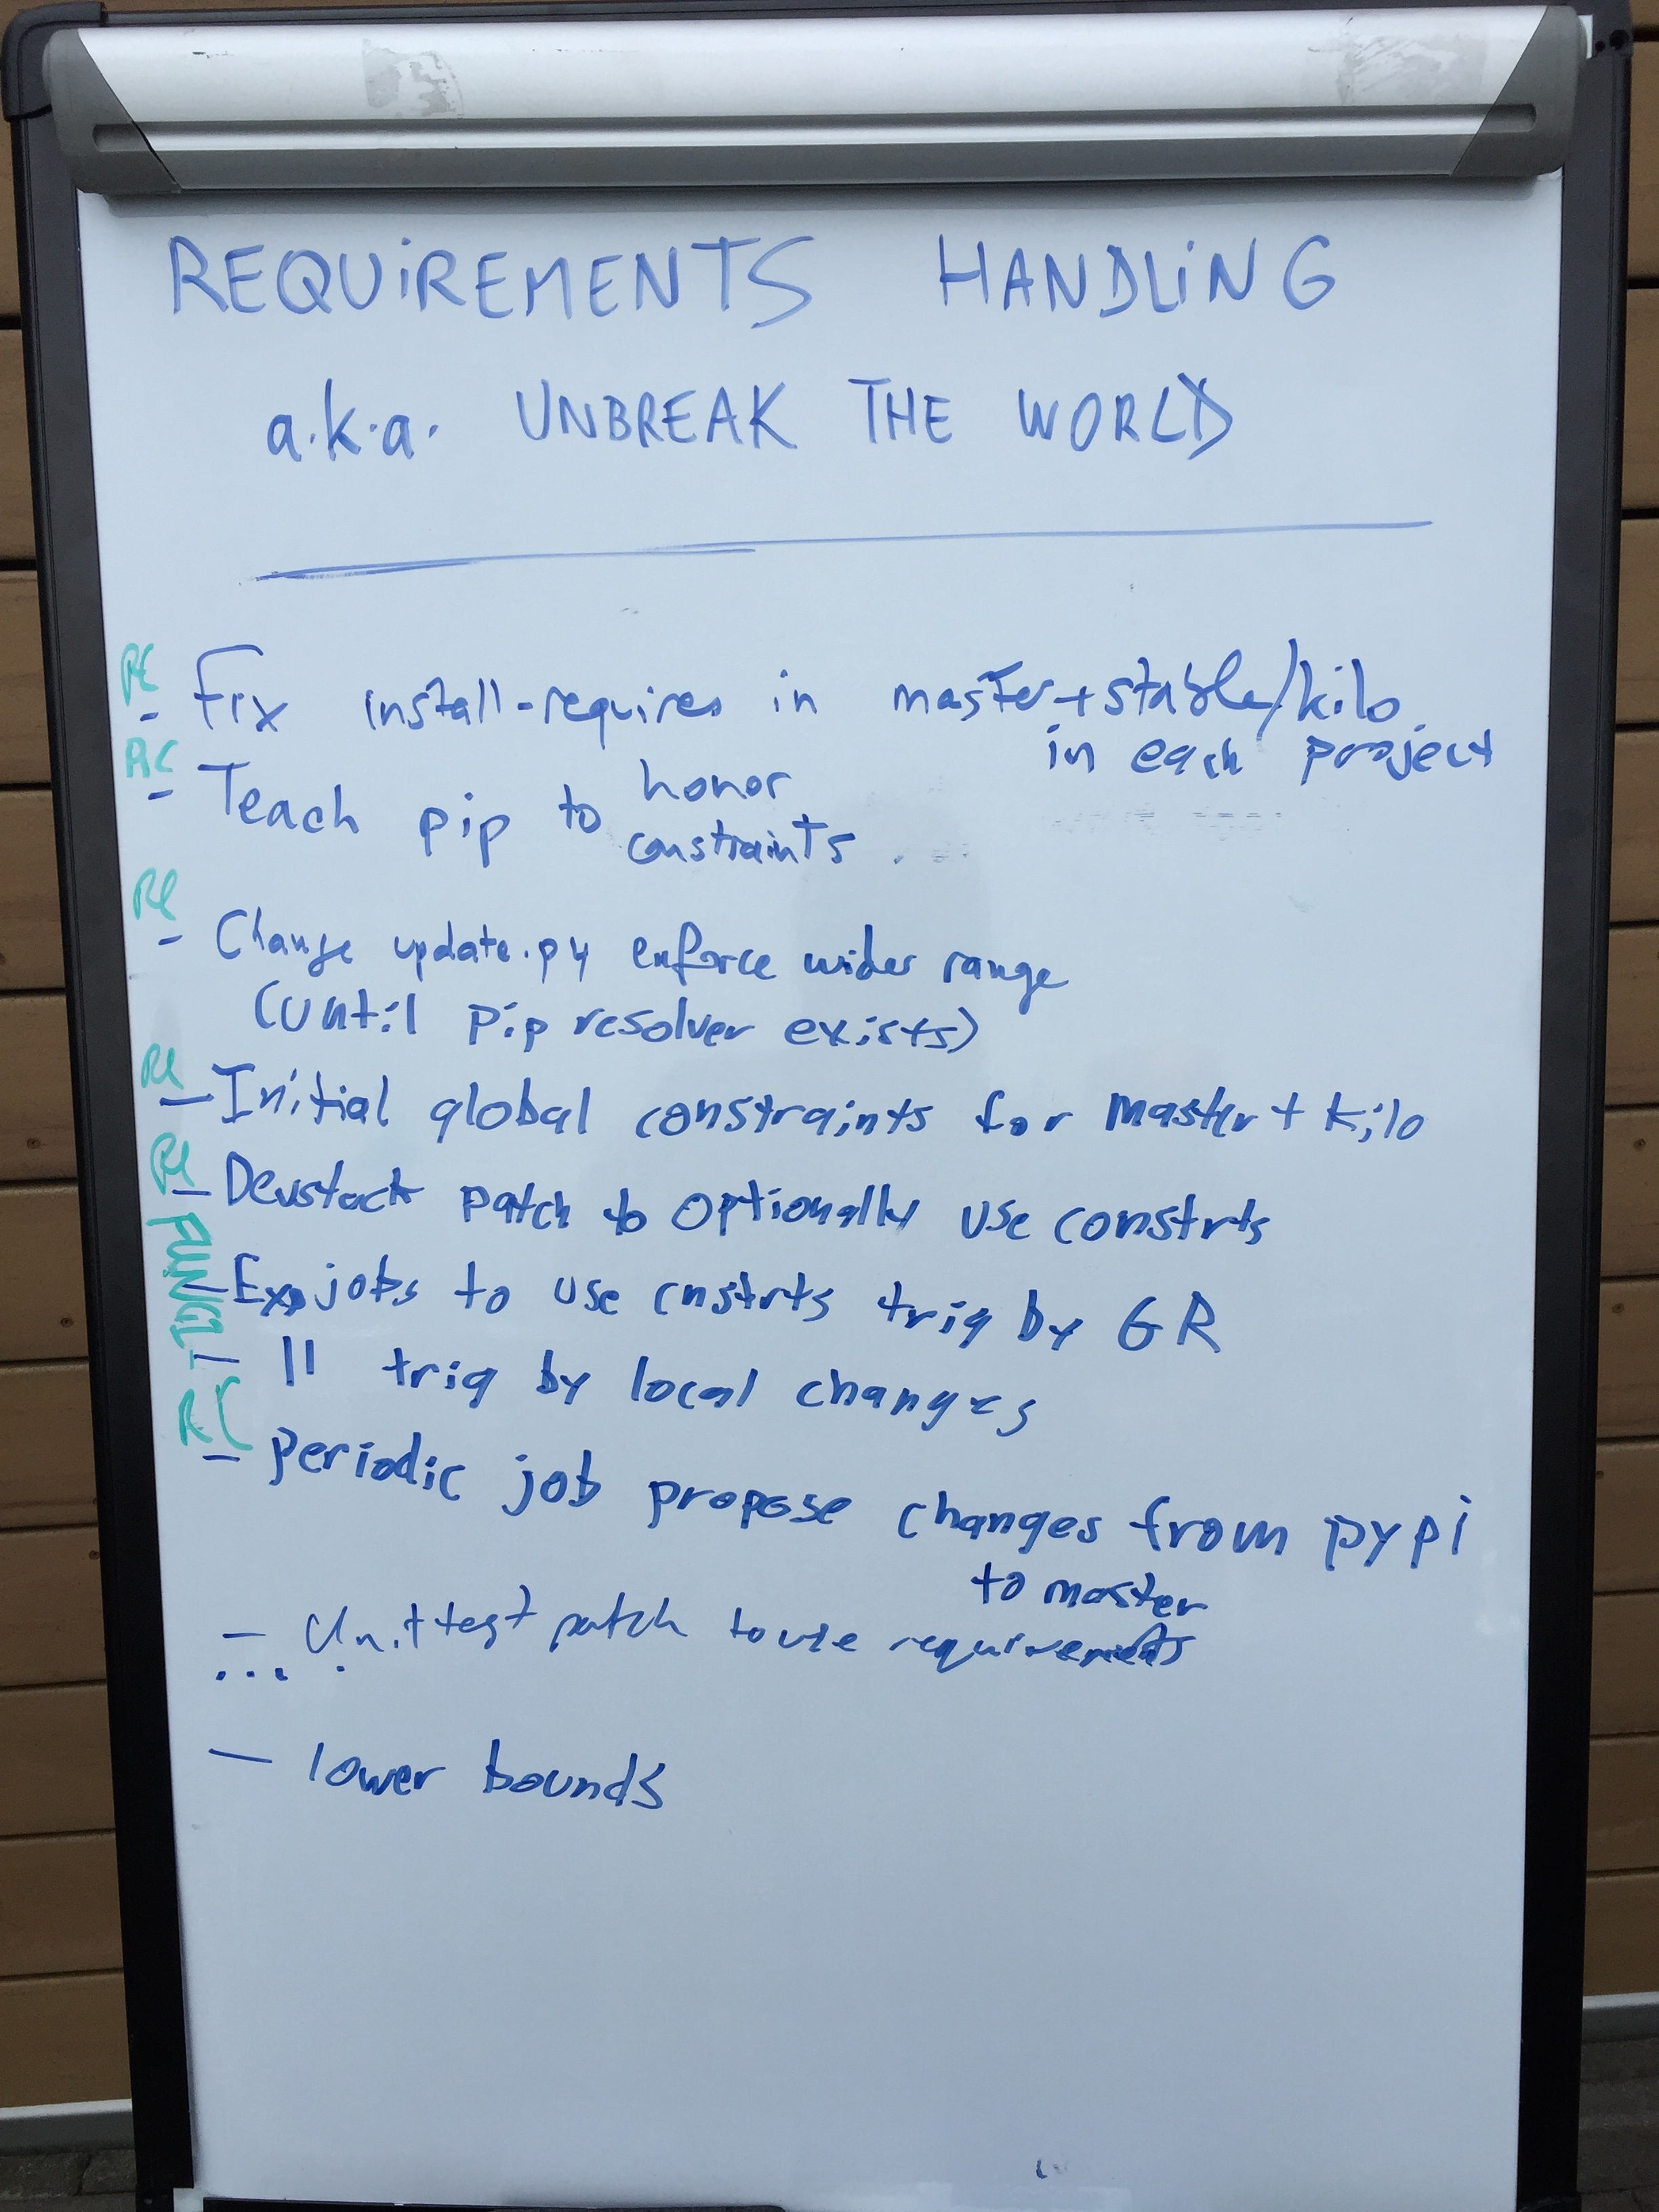 REQUIREMENTS HANDLING
a.k.a. UNBREAK THE WORLD
RC
- Fix install-requires in master+stable/kilo
in each project
RC
- Teach pip to honor
constraints.
RC
- Change update.py enforce wider range
(until pip resolver exists)
RC
- Initial global constraints for master + kilo
RC
- Devstack patch to optionally use constrts
FUNGI
- Exp jobs to use cnstrts trig by GR
- 11 trig by local changes
RC
- Periodic job propose changes from pypi
to master
- Unit test patch to use requirements
...
- lower bounds